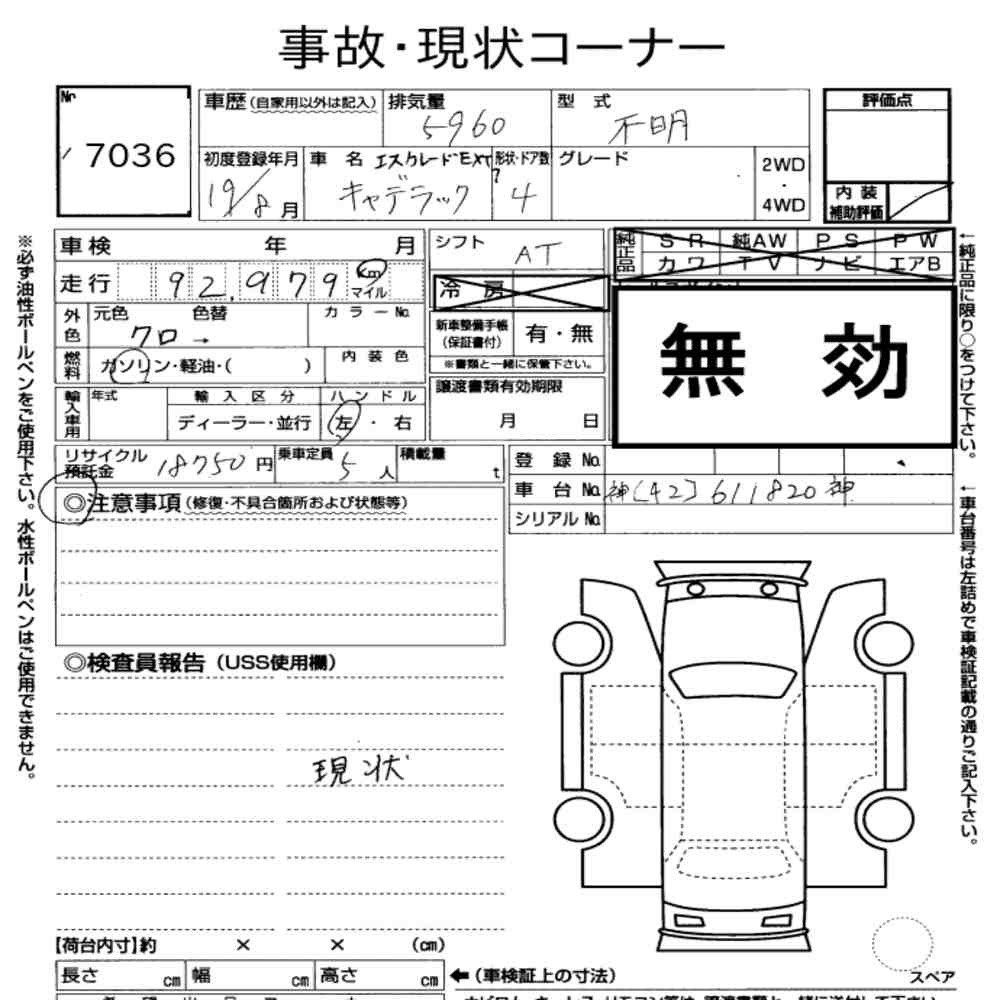 事故・現状コーナー
No.
7036
車歴(自家用以外は記入)
排気量
5960
型式
不明
評価点
初度登録年月
19/8月
車名
エスカレードEXT
キャデラック
形状・ドア数
?
4
グレード
2WD
・
4WD
内装
補助評価
車検 年 月
走行 92,979 Km
マイル
シフト
AT
純正品
SR 純AW PS PW
カワ TV ナビ エアB
冷房
外色
元色 色替
クロ →
カラーNo.
燃料
ガソリン・軽油・( )
内装色
新車整備手帳
(保証書付)
有・無
※書類と一緒に保管下さい。
無効
輸入車用
年式
輸入区分
ディーラー・並行
ハンドル
左・右
譲渡書類有効期限
月 日
リサイクル
預託金
18750円
乗車定員
5人
積載量
t
登録No.
車台No. 神(42)611820神
シリアルNo.
◎注意事項(修復・不具合箇所および状態等)
◎検査員報告(USS使用欄)
現状
【荷台内寸】約 × × (cm)
長さ cm 幅 cm 高さ cm
←(車検証上の寸法)
スペア
※必ず油性ボールペンをご使用下さい。水性ボールペンはご使用できません。
←純正品に限り○をつけて下さい。
←車台番号は左詰めで車検証記載の通りご記入下さい。